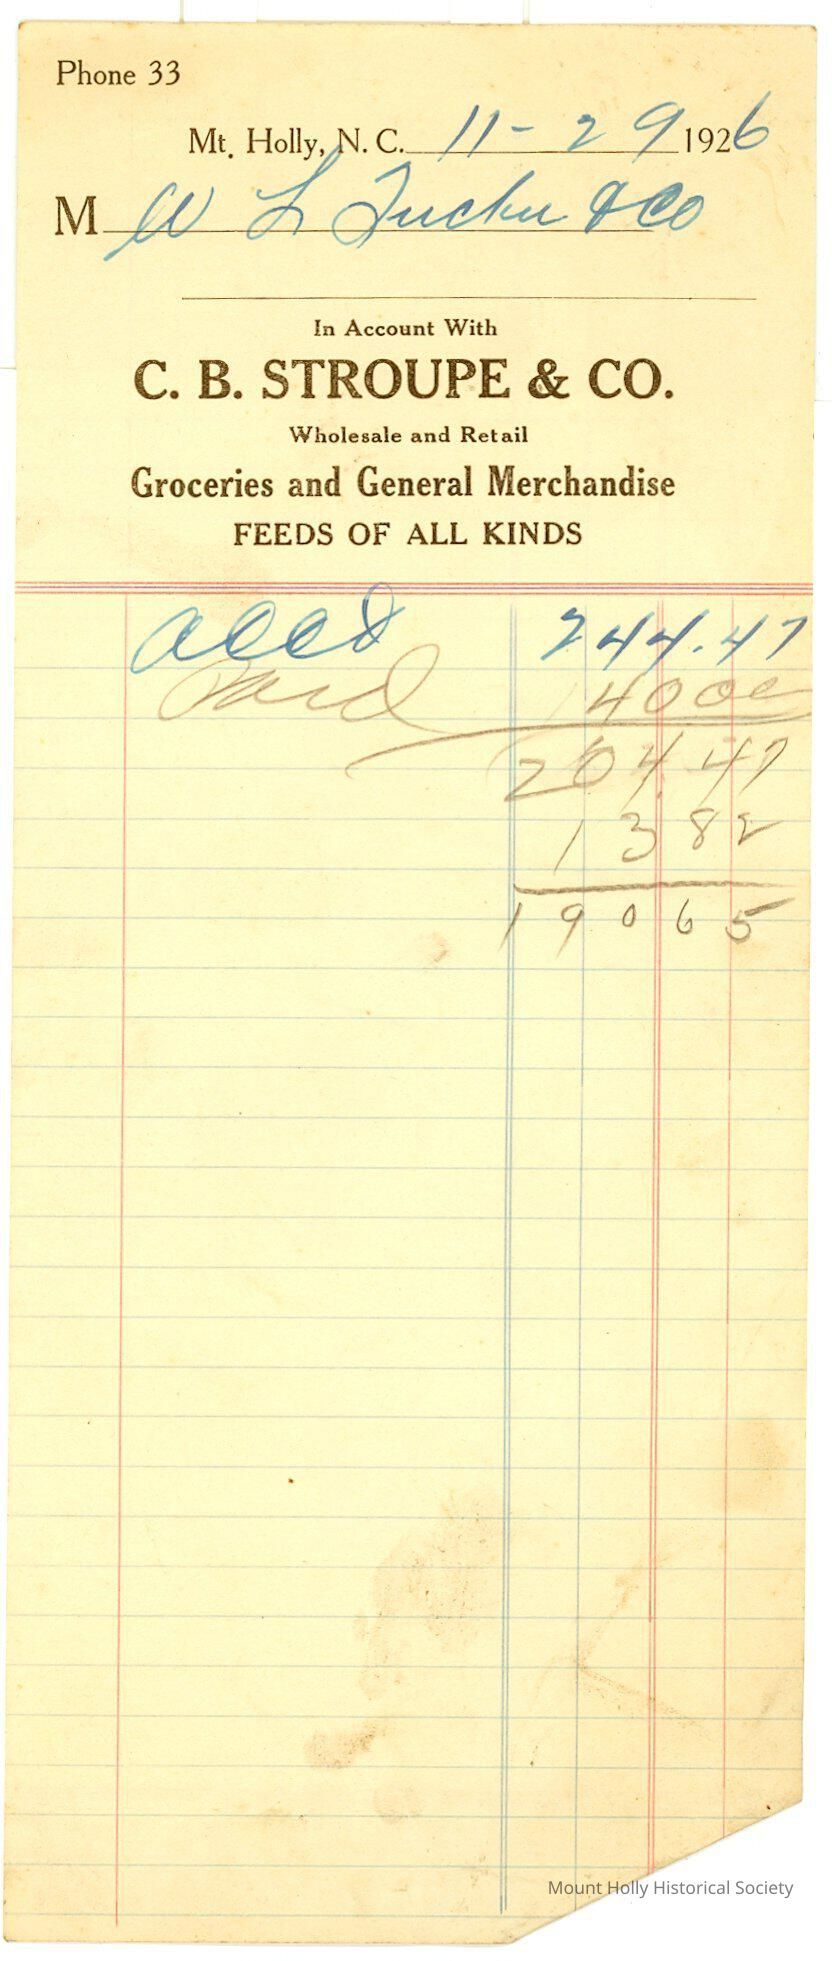 Phone 33
Mt. Holly, N. C. 11-29 1926
M W L Tucker & Co
In Account With
C. B. STROUPE & CO.
Wholesale and Retail
Groceries and General Merchandise
FEEDS OF ALL KINDS
acct 244.47
Paid 40 00
204.47
13 82
190 65
Mount Holly Historical Society